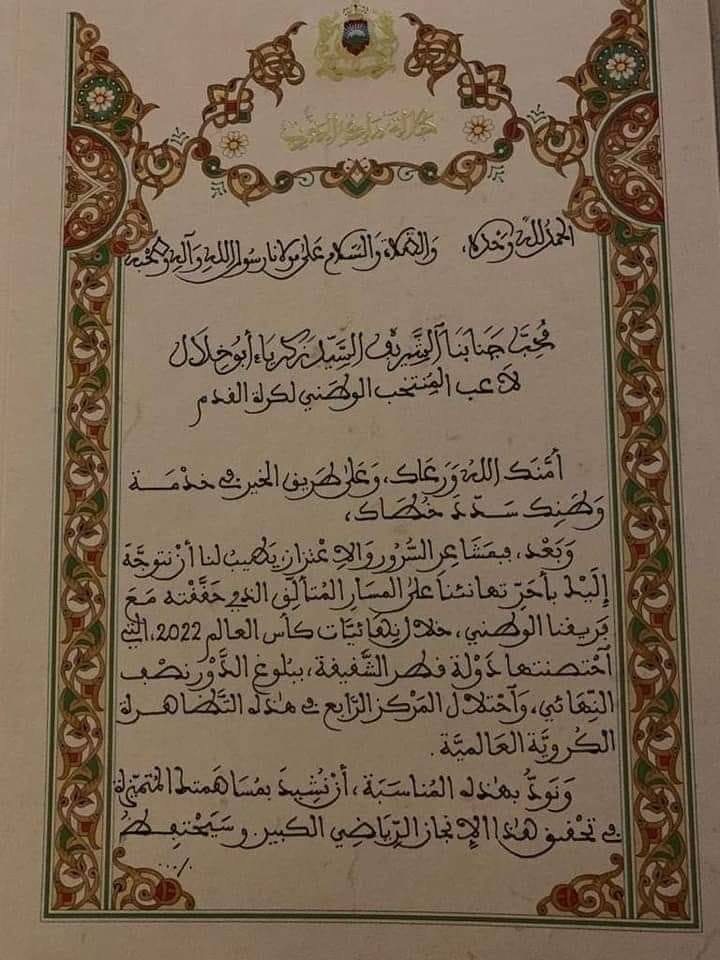 جلالة ملك المغرب
الحمد لله وحده، والصلاة والسلام على مولانا رسول الله وآله وصحبه
محب جنابنا الشريف السيد زكرياء أبو خلال
لاعب المنتخب الوطني لكرة القدم
أمنك الله ورعاك، وعلى طريق الخير في خدمة
وطنك سدد خطاك،
وبعد، فبمشاعر السرور والاعتزاز يطيب لنا أن نتوجه
إليك بأحر تهانئنا على المسار المتألق الذي حققته مع
فريقنا الوطني، خلال نهائيات كأس العالم 2022، التي
احتضنتها دولة قطر الشقيقة، ببلوغ الدور نصف
النهائي، واحتلال المركز الرابع في هذه التظاهرة
الكروية العالمية.
ونود بهذه المناسبة، أن نشيد بمساهمتك المتميزة
في تحقيق هذا الإنجاز الرياضي الكبير. وسيحتفظ
.../.